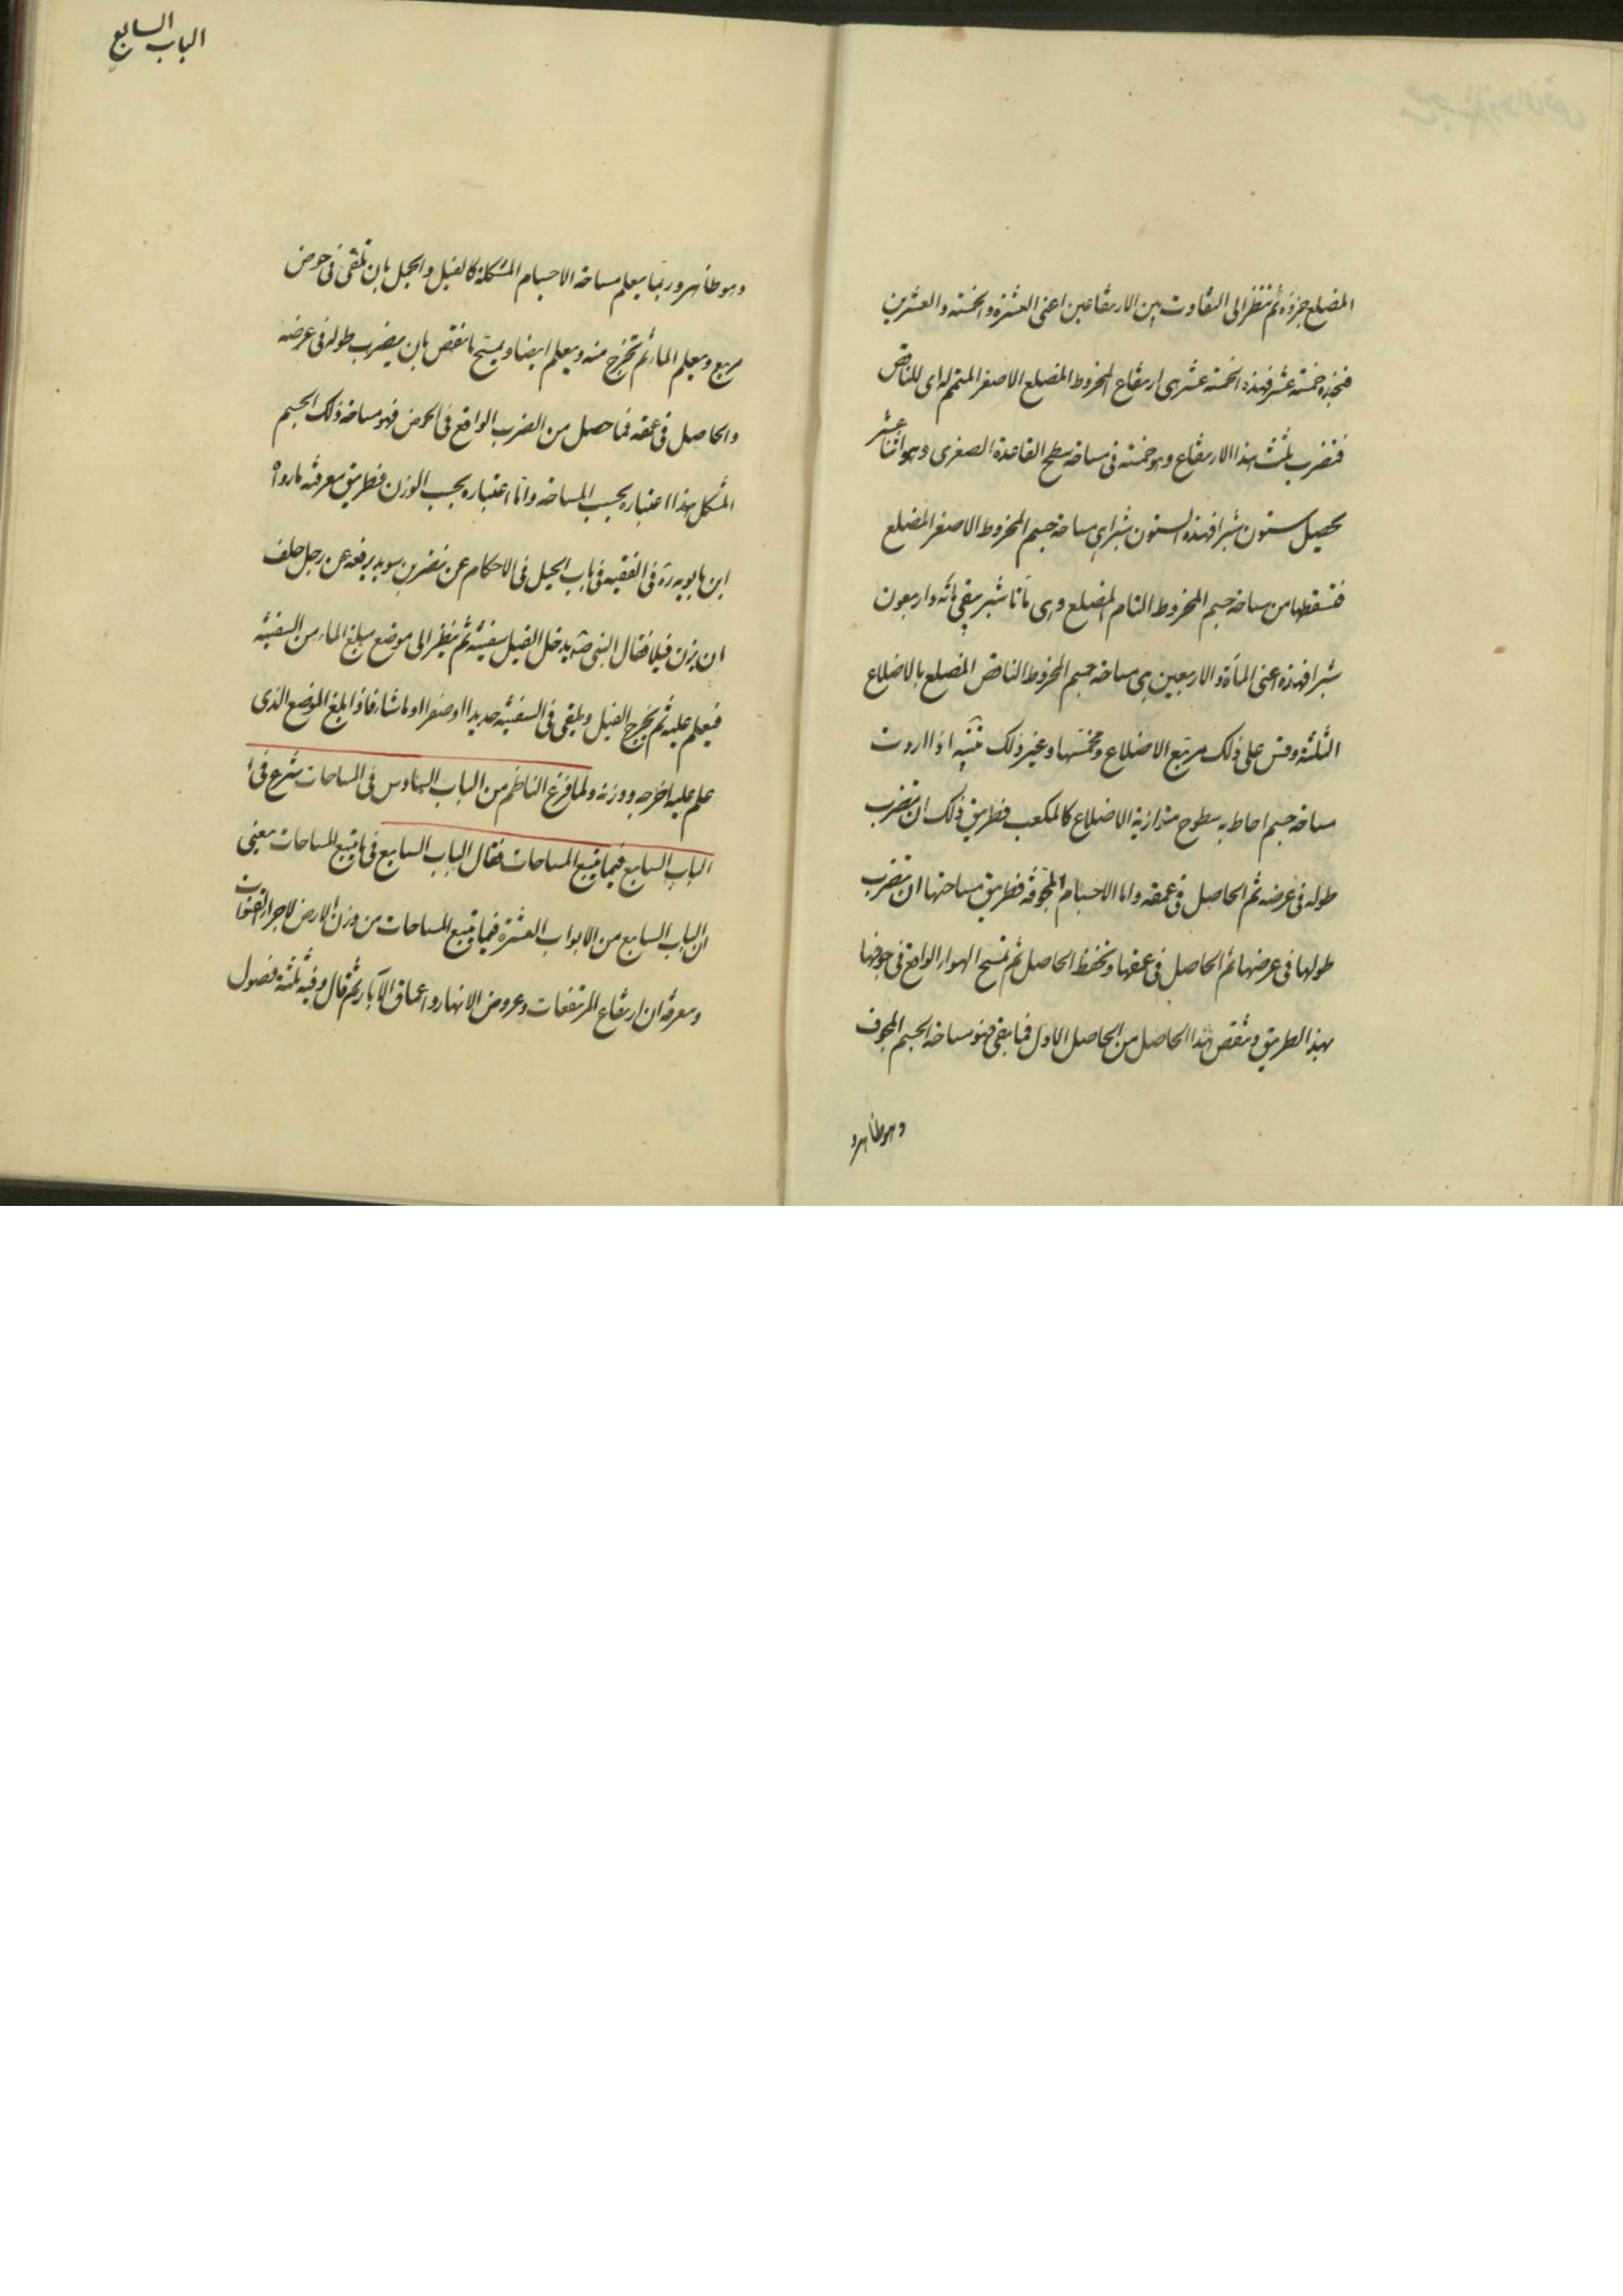 المضلع جزؤه ثم تنظر الى التفاوت بين الارتفاعين اعنى العشرة والخمسة والعشرين
فتجده خمسة عشر فهذه الخمسة عشر هى ارتفاع المخروط المضلع الاصغر المتمم له اى للناقص
فتضرب ثلث هذا الارتفاع وهو خمسة فى مساحة سطح القاعدة الصغرى وهو اثنا عشر
يحصل ستون شبرا فهذه الستون شبرا هى مساحة جسم المخروط الاصغر المضلع
فتسقطها من مساحة جسم المخروط التام المضلع وهى مأتا شبر يبقى مائة واربعون
شبرا فهذه اعنى المأة والاربعين هى مساحة جسم المخروط الناقص المضلع بالاضلاع
الثلثة وقس على ذلك مربع الاضلاع ومخمسها وغير ذلك تنبيه اذا اردت
مساحة جسم احاط به سطوح متوازية الاضلاع كالمكعب فطريق ذلك ان تضرب
طوله فى عرضه ثم الحاصل فى عمقه واما الاجسام المجوفة فطريق مساحتها ان تضرب
طولها فى عرضها ثم الحاصل فى عمقها وتحفظ الحاصل ثم تمسح الهواء الواقع فى جوفها
بهذا الطريق وتنقص هذا الحاصل من الحاصل الاول فما بقى فهو مساحة الجسم المجوف
وهو ظاهر و
الباب السابع
وهو ظاهر وربما يعلم مساحة الاجسام المشكلة كالفيل والجمل بان تلقى فى حوض
مربع ويعلم الماء ثم تخرج منه ويعلم ايضا ويمسح ما نقص بان يضرب طوله فى عرضه
والحاصل فى عمقه فما حصل من الضرب الواقع فى الحوض فهو مساحة ذلك الجسم
المشكل هذا اعتباره بحسب المساحة واما اعتباره بحسب الوزن فطريق معرفته ما رواه
ابن بابويه ره فى الفقيه فى باب الحيل فى الاحكام عن نضر بن سويد يرفعه عن رجل حلف
ان يزن فيلا فقال النبى ص يدخل الفيل سفينة ثم ينظر الى موضع مبلغ الماء من السفينة
فيعلم عليه ثم يخرج الفيل ويلقى فى السفينة حديدا او صفرا او ما شاء فاذا بلغ الموضع الذى
علم عليه اخرجه ووزنه ولما فرغ الناظم من الباب السادس فى المساحات شرع فى
الباب السابع فيما يتبع المساحات فقال الباب السابع فى ما يتبع المساحات يعنى
ان الباب السابع من الابواب العشرة فيما يتبع المساحات من وزن الارض لاجراء القنوات
ومعرفة ان ارتفاع المرتفعات وعروض الانهار واعماق الآبار ثم قال وفيه ثلثة فصول